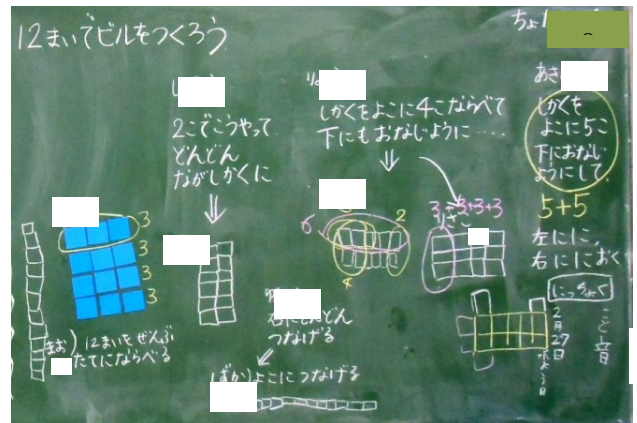 12まいでビルをつくろう
2こでこうやって
どんどん
ながしかくに
しかくをよこに4こならべて
下にもおなじように‥‥
しかくを
よこに5こ
下におなじ
ようにして
5+5
左に1こ,
右に1こおく
3
3
3
3
6
2
4
3+3+3+3
12まいをぜんぶ
たてにならべる
どんどん
つなげる
よこにつなげる
にっちょく
2月27日
水よう日